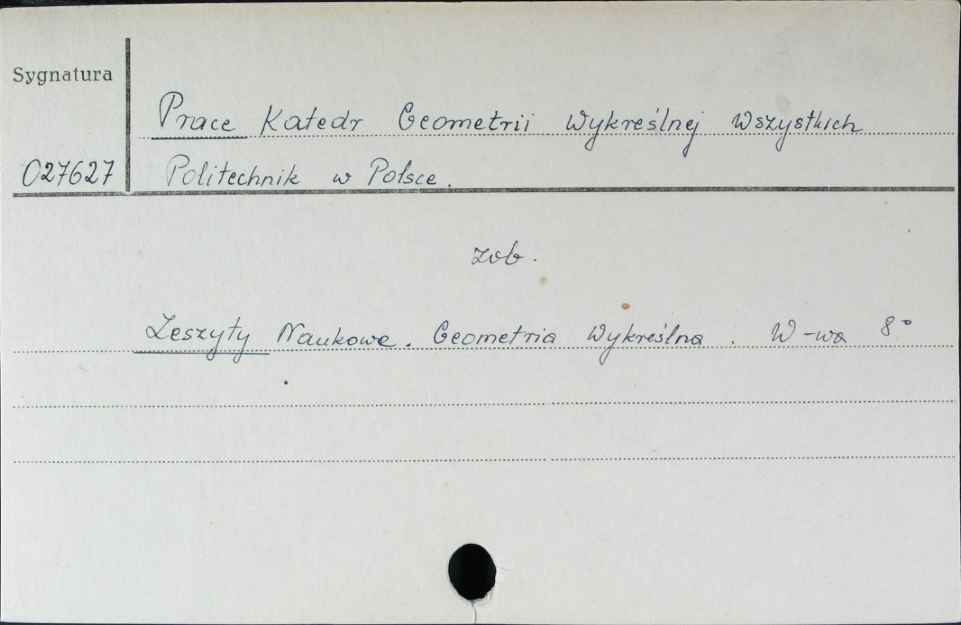 Sygnatura
Prace Katedr Geometrii Wykreślnej Wszystkich
027627 Politechnik w Polsce.
zob.
Zeszyty Naukowe. Geometria Wykreślna. W-wa 8°